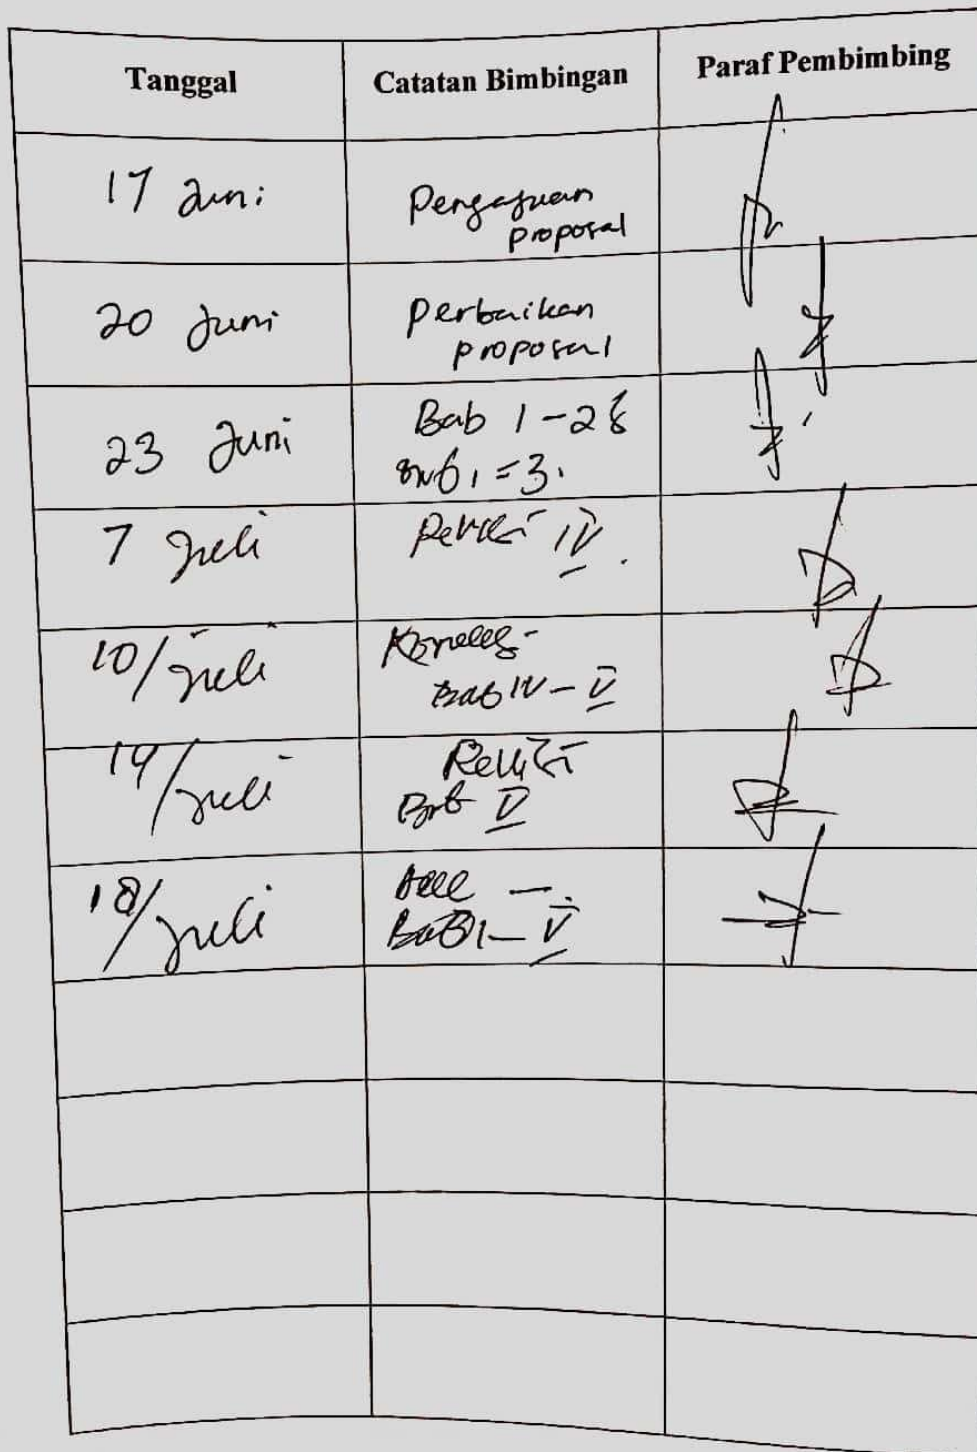 Tanggal
Catatan Bimbingan
Paraf Pembimbing
17 Juni
Pengajuan
proposal
20 Juni
Perbaikan
proposal
23 Juni
Bab 1-2 &
= 3.
7 Juli
Revisi IV.
10/Juli
Bab IV - V
14/Juli
Revisi
Bab V
18/Juli
Acc -.
Bab 1 - V